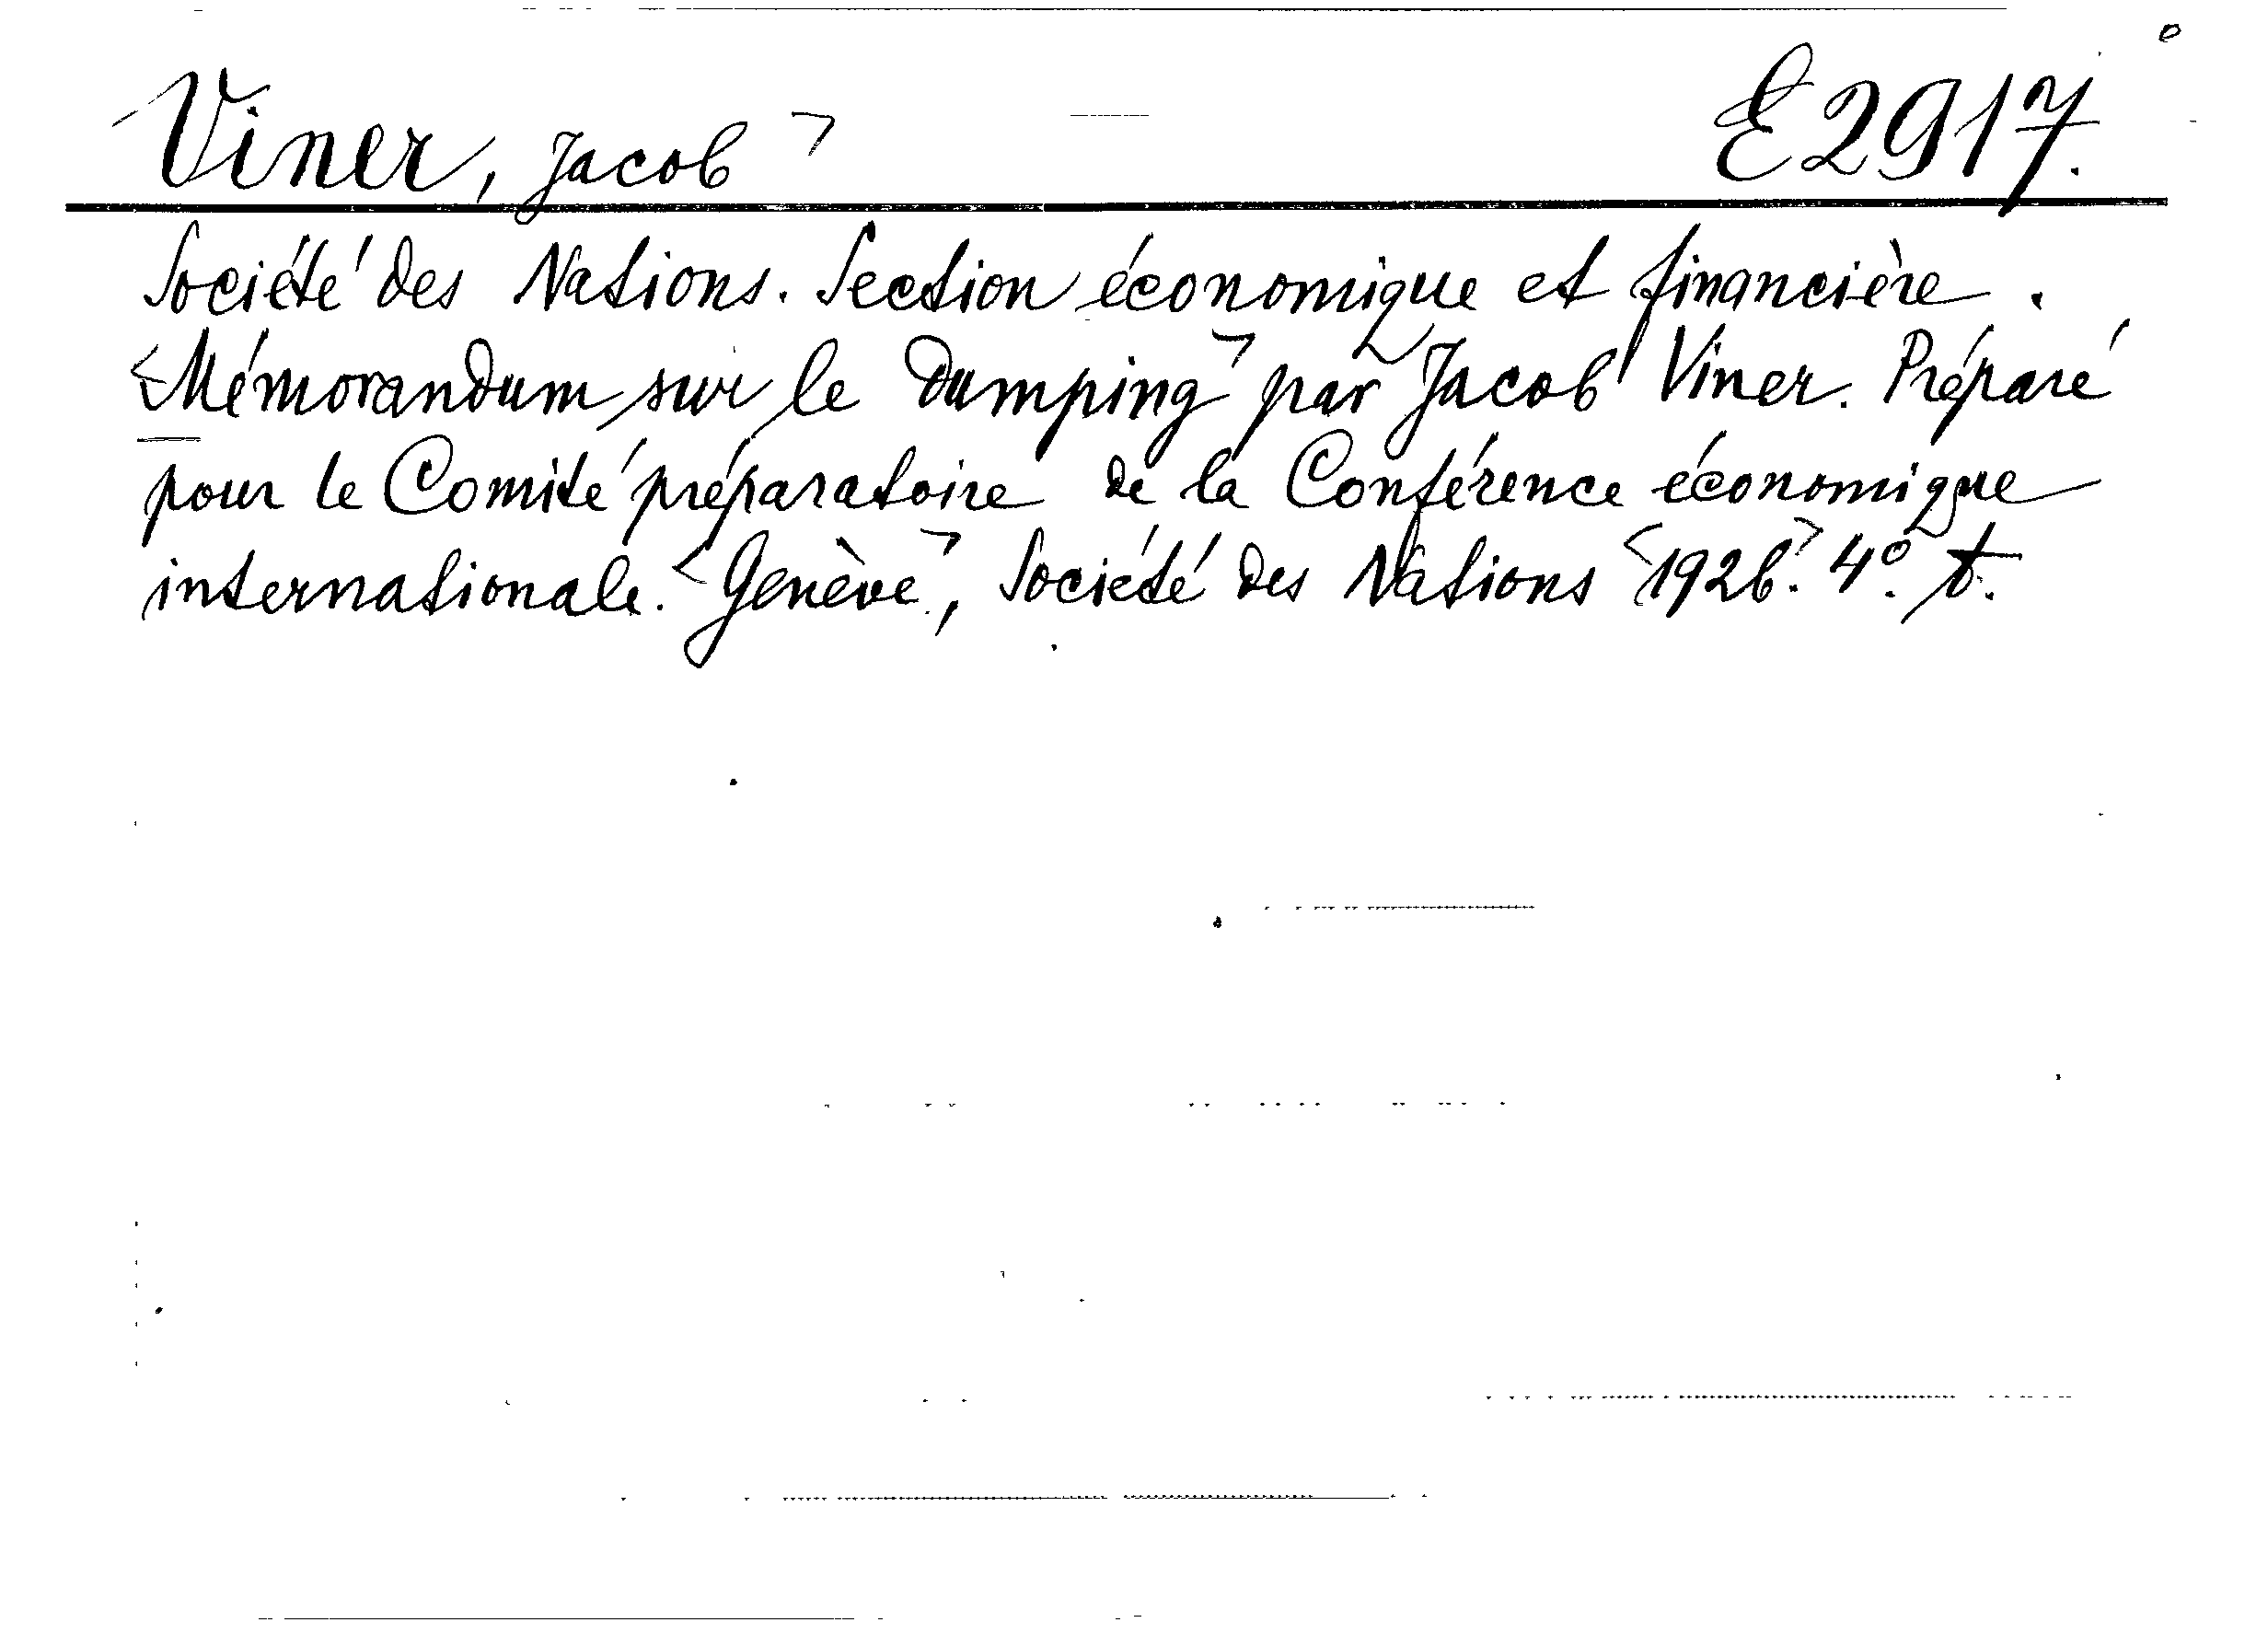 Viner, Jacob> E2917.
Société des Nations. Section économique et financière.
<Mémorandum sur le Dumping> par Jacob Viner. Préparé
pour le Comité préparatoire de la Conférence économique
internationale. <Genève>, Société des Nations <1926>. 4°. t.